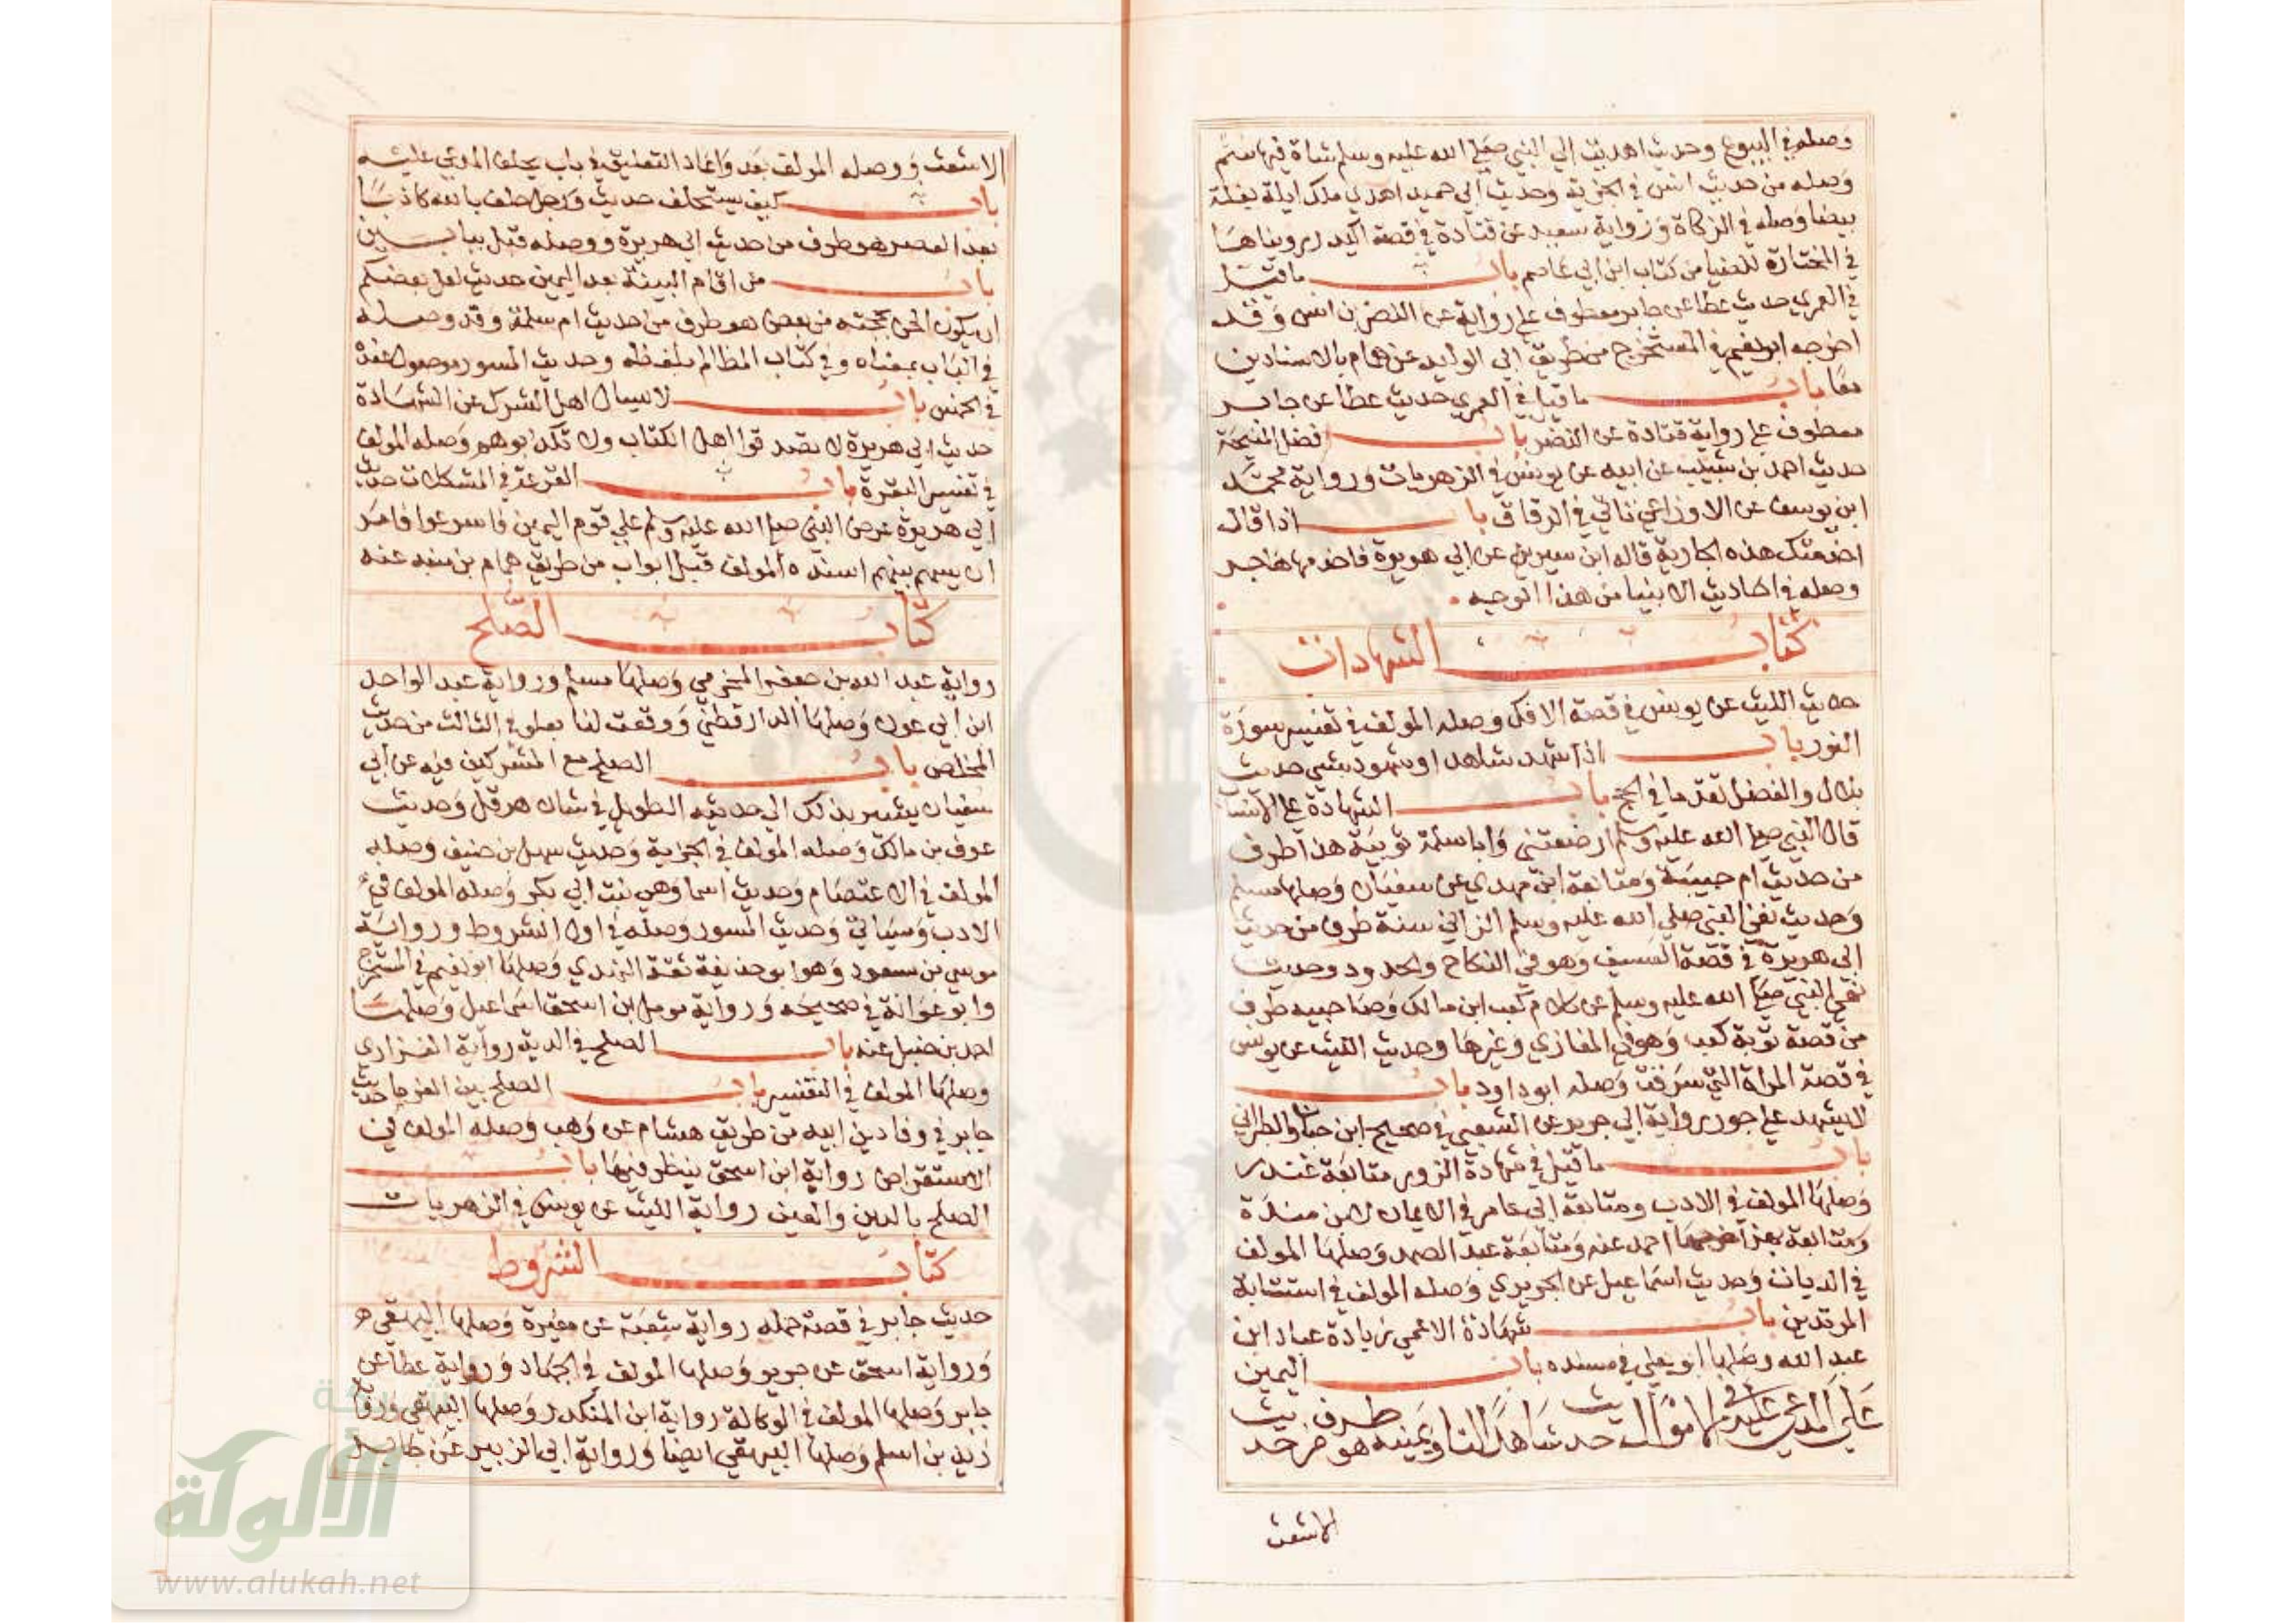 وصله في البيوع وحديث اهديت الي النبي صلي الله عليه وسلم شاة فيها سم
وصله من حديث انس في الجزية وحديث ابي حميد اهدي ملك ايلة بغلة
بيضا وصله في الزكاة ورواية سعيد عن قتادة في قصة اكيدر رويناها
في المختارة للضيا من كتاب ابن ابي عاصم باب ما قيل
في العمري حديث عطا عن جابر معطوف علي رواية عن النضر بن انس وقد
اخرجه ابو نعيم في المستخرج من طريق ابي الوليد عن همام بالاسنادين
معا باب ما قيل في العمري حديث عطا عن جابر
معطوف علي رواية قتادة عن النضر باب فضل المنيحة
حديث احمد بن شبيب عن ابيه عن يونس في الزهريات ورواية محمد
ابن يوسف عن الاوزاعي تاتي في الرقاق باب اذا قال
اخدمتك هذه الجارية قاله ابن سيرين عن ابي هريرة فاخدمها هاجر
وصله في احاديث الانبيا من هذا الوجه
كتاب الشهادات
حديث الليث عن يونس في قصة الافك وصله المولف في تفسير سورة
النور باب اذا شهد شاهد او شهود بشي حديث
بلال والفضل تقدما في الحج باب الشهادة علي الانساب
قال النبي صلي الله عليه وسلم ارضعتني وابا سلمة ثويبة هذا طرف
من حديث ام حبيبة ومتابعة ابن مهدي عن سفيان وصلها مسلم
وحديث نفي النبي صلي الله عليه وسلم الزاني سنة طرف من حديث
ابي هريرة في قصة العسيف وهو في النكاح والحدود وحديث
نهي النبي صلي الله عليه وسلم عن كلام كعب ابن مالك وصاحبيه طرف
من قصة توبة كعب وهو في المغازي وغيرها وحديث الليث عن يونس
في قصة المراة التي سرقت وصله ابو داود باب
لا يشهد علي جور رواية ابي جرير عن الشعبي في صحيح ابن حبان والطبراني
باب ما قيل في شهادة الزور متابعة غندر
وصلها المولف في الادب ومتابعة ابي عامر في الايمان لابن مندة
ومتابعة بهز اخرجها احمد عنه ومتابعة عبد الصمد وصلها المولف
في الديات وحديث اسماعيل عن الجريري وصله المولف في استتابة
المرتدين باب شهادة الاعمي زيادة عباد ابن
عبد الله وصلها ابو يعلي في مسنده باب اليمين
علي المدعي عليه في الاموال حديث شاهداك او يمينه هو طرف من حديث
الاشعث
الاشعث ووصله المولف بعد واعاد التعليق في باب يحلف المدعي عليه
باب كيف يستحلف حديث ورجل حلف بالله كاذبا
بعد العصر هو طرف من حديث ابي هريرة ووصله قبل ببابين
باب من اقام البينة بعد اليمين حديث لعل بعضكم
ان يكون الحن بحجته من بعض هو طرف من حديث ام سلمة وقد وصله
في الباب بمعناه وفي كتاب المظالم بلفظه وحديث المسور موصول عنده
في الخمس باب لا يسال اهل الشرك عن الشهادة
حديث ابي هريرة لا تصدقوا اهل الكتاب ولا تكذبوهم وصله المولف
في تفسير البقرة باب القرعة في المشكلات حديث
ابي هريرة عرض النبي صلي الله عليه وسلم علي قوم اليمين فاسرعوا فامر
ان يسهم بينهم اسنده المولف قبل ابواب من طريق همام بن منبه عنه
كتاب الصلح
رواية عبد الله بن جعفر المخرمي وصلها مسلم ورواية عبد الواحد
ابن ابي عون وصلها الدارقطني ووقعت لنا بعلو في الثالث من حديث
المخلص باب الصلح مع المشركين فيه عن ابي
سفيان يشير بذلك الي حديثه الطويل في شان هرقل وحديث
عوف بن مالك وصله المولف في الجزية وحديث سهل بن حنيف وصله
المولف في الاعتصام وحديث اسما وهي بنت ابي بكر وصله المولف في
الادب وسياتي وحديث المسور وصله في اول الشروط ورواية
موسي بن مسعود وهو ابو حذيفة النهدي وصلها ابو نعيم في المستخرج
وابو عوانة في صحيحه ورواية مومل ابن اسمعيل وصلها
احمد بن حنبل عنه باب الصلح في الدية رواية الفزاري
وصلها المولف في التفسير باب الصلح بين الغرما حديث
جابر في وفا دين ابيه من طريق هشام عن وهب وصله المولف في
الاستقراض رواية ابن اسحق ينظر فيها باب
الصلح بالدين والعين رواية الليث عن يونس في الزهريات
كتاب الشروط
حديث جابر في قصة جمله رواية شعبة عن مغيرة وصلها البيهقي
ورواية اسحق عن جرير وصلها المولف في الجهاد ورواية عطا عن
جابر وصلها المولف في الوكالة رواية ابن المنكدر وصلها البيهقي ورواية
زيد بن اسلم وصلها البيهقي ايضا ورواية ابي الزبير عن جابر
شبكة
الألوكة
www.alukah.net